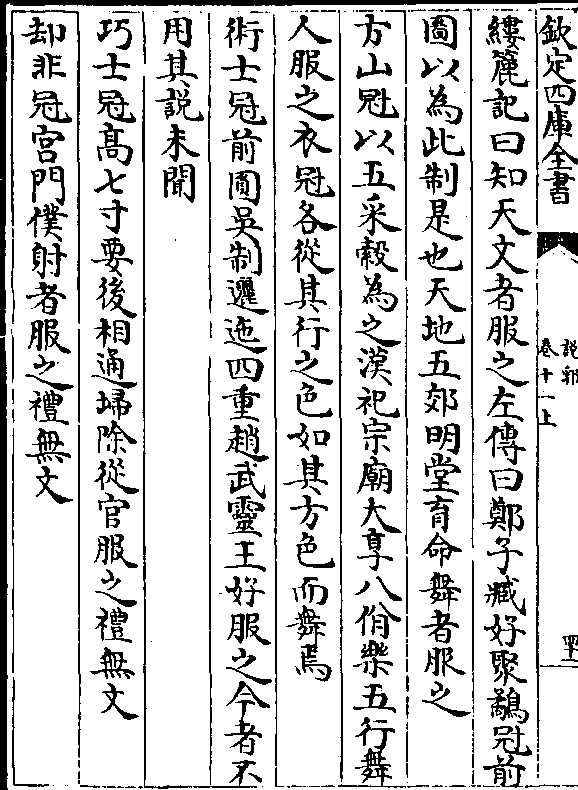 欽定四庫全書
說郛
卷十一上
四十一
縷簏記曰知天文者服之左傳曰鄭子臧好聚鷸冠前
圖以為此制是也天地五郊明堂育命舞者服之
方山冠以五采縠為之漢祀宗廟大享八佾樂五行舞
人服之衣冠各從其行之色如其方色而舞焉
術士冠前圓吳制邐迤四重趙武靈王好服之今者不
用其說未聞
巧士冠高七寸要後相通埽除從官服之禮無文
却非冠宮門僕射者服之禮無文